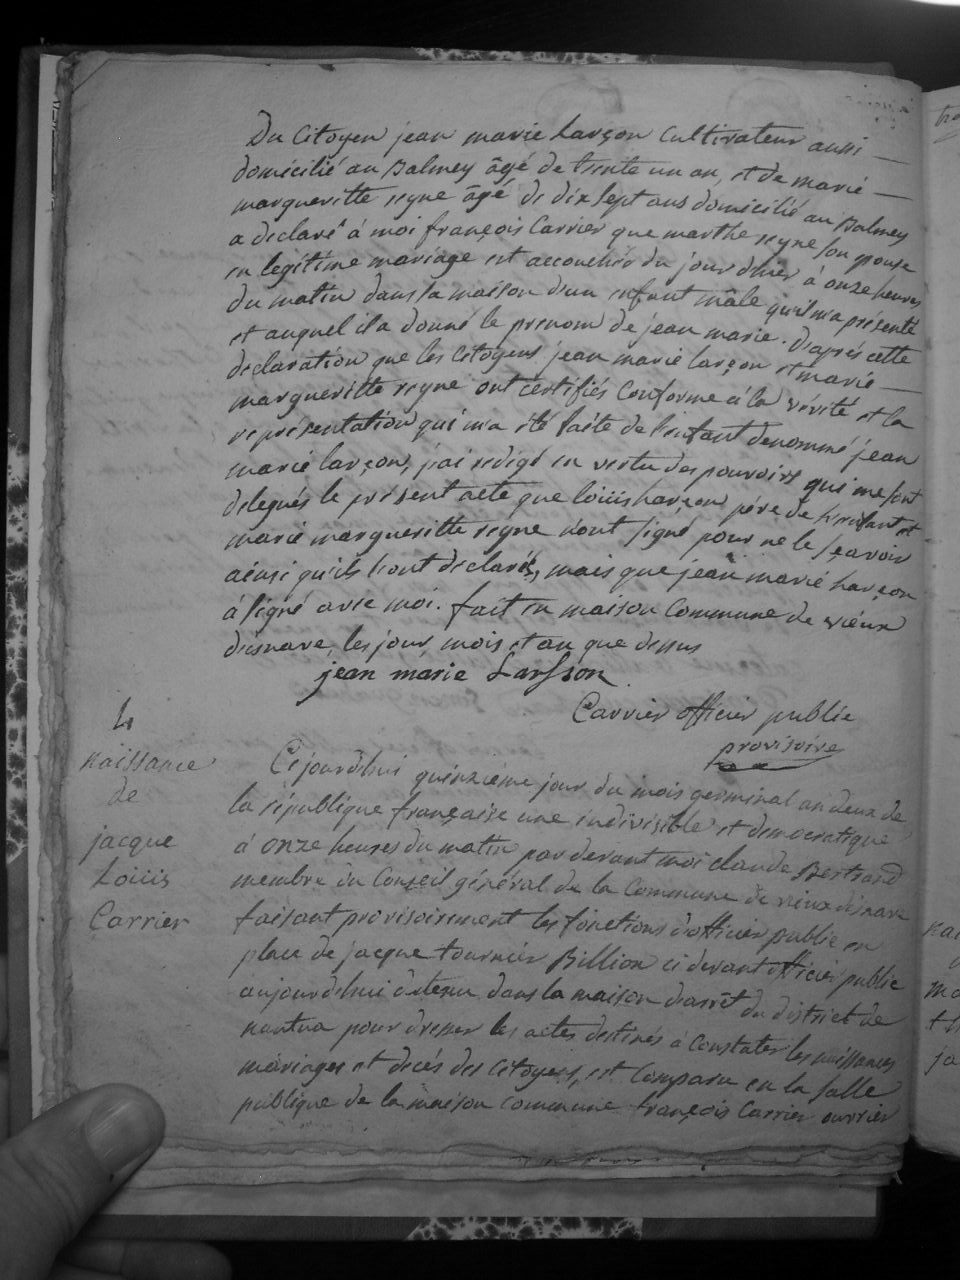 Du Citoyen jean marie Larçon Cultivateur aussi
domicilié au Balmey âgé de trente un an, et de marie
margueritte reyne âgé de dix sept ans domicilié au Balmey
a declaré à moi françois Carrier que marthe reyne son epouse
en legitime mariage est accouchée du jour d'hier à onze heures
du matin dans sa maison d'un enfant mâle qu'il m'a présenté
et auquel il a donné le prenom de jean marie. D'après cette
declaration que les Citoyens jean marie larçon et marie
margueritte reyne ont certifiés Conforme à la vérité et la
représentation qui m'a été faite de l'enfant denommé jean
marie larçon, j'ai redigé en vertu des pouvoirs qui me sont
delegués le présent acte que loüis harçon père de l'enfant et
marie margueritte reyne n'ont signé pour ne le sçavoir
ainsi qu'ils l'ont declarés, mais que jean marie harçon
à signé avec moi. fait en maison Commune de vieux
disnave, les jour, mois et an que dessus
jean marie Larsson
Carrier officier public
provisoire
4
naissance
de
jacque
Loüis
Carrier
Cejourd'hui quinzième jour du mois germinal an deux de
la république française une indivisible et democratique
à onze heures du matin par devant moi claude Bertrand
membre du Conseil général de la Commune de vieux disnave
faisant provisoirement les fonctions d'officier public en
place de jacque tournier Billion ci devant officier public
aujourd'hui detenu dans la maison d'arrêt du district de
nantua pour dresser les actes destinés à Constater les naissances
mariages et decés des Citoyens, est Comparu en la salle
publique de la maison commune françois Carrier ouvrier